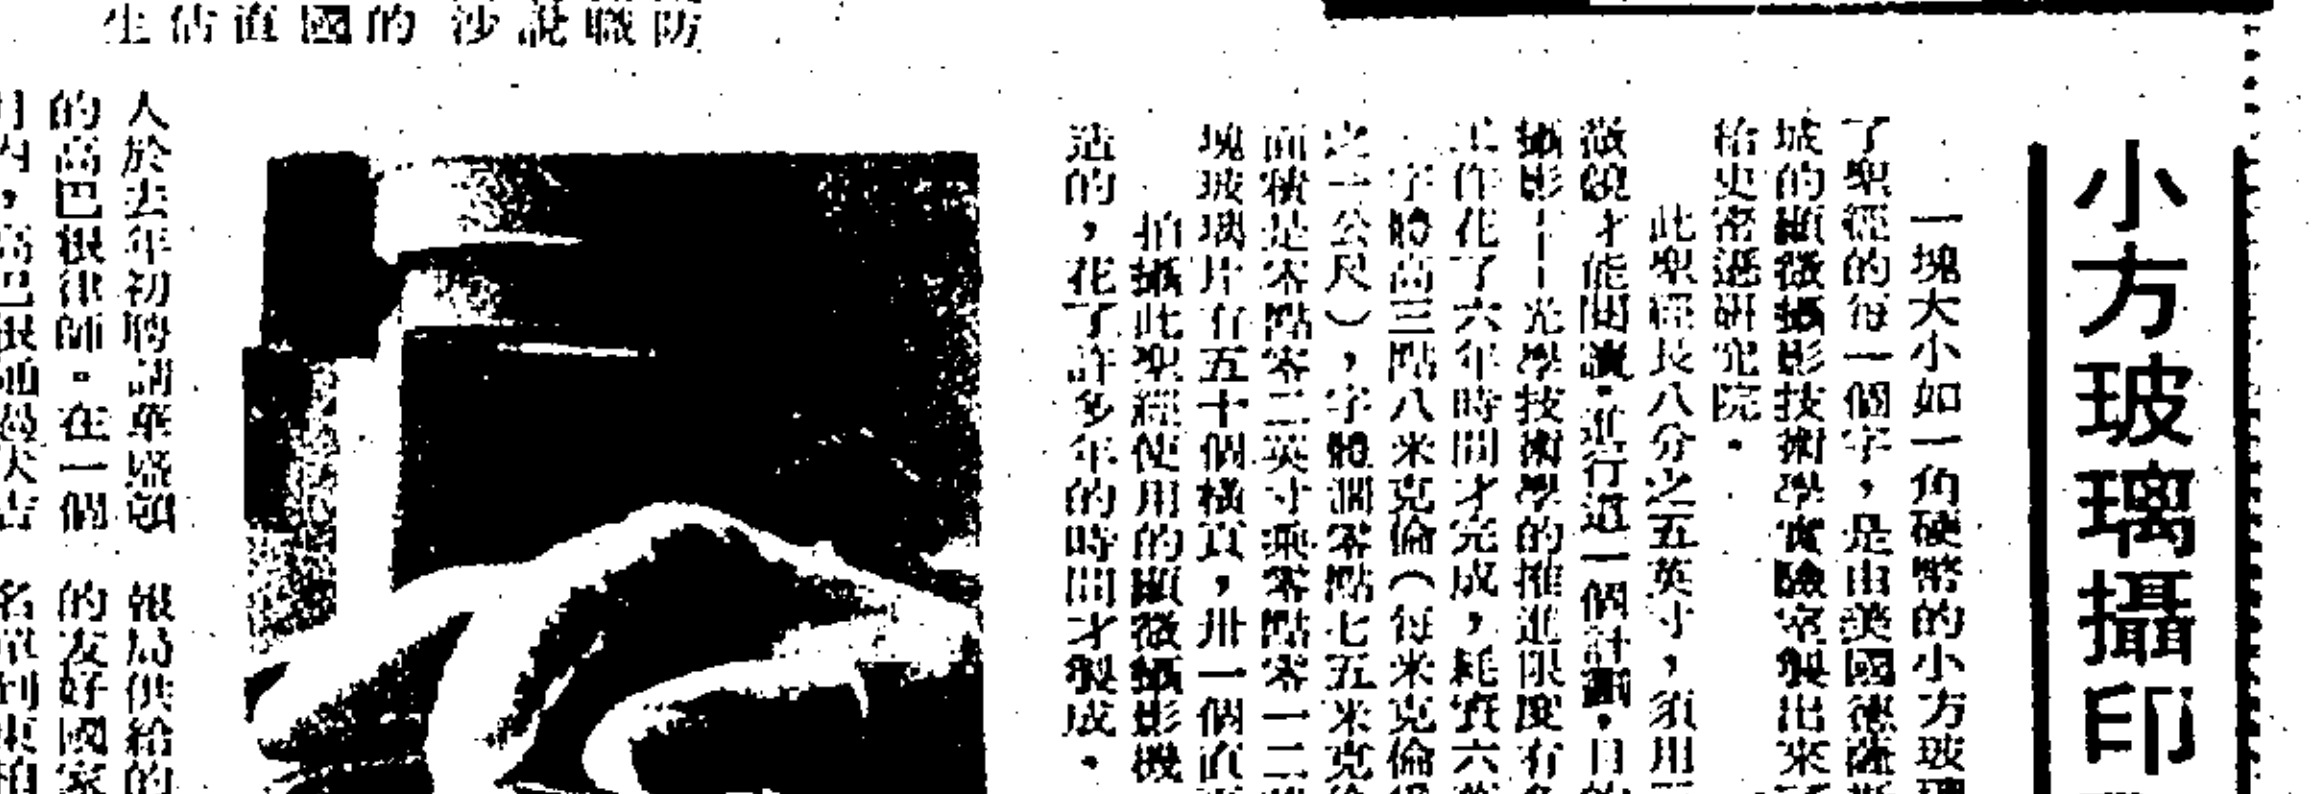 小方玻璃攝印
一塊大小如一角硬幣的小方玻璃
了聖經的每一個字，是由美國德薩斯
坡的顯微攝影技術學實驗室製出來
給史密遜研究院．
此聖經長八分之五英寸，須用
微鏡才能閱讀．進行這一個計劃，目的
攝影——光學技術學的推進限度有多
工作花了六年時間才完成，耗資六萬
字體高三點八米克倫（每米克倫
之一公尺），字體濶零點七五米克倫
面積是零點零二英寸乘零點零一二
塊玻璃片有五十個橫頁，卅一個直
拍攝此聖經使用的顯微攝影機
造的，花了許多年的時間才製成．
生估直國的 涉說職防
人於去年初聘請華盛頓
的高巴根律師。在一個
月內，高巴根通過大吉
報局供給的
的友好國家
名單到東柏